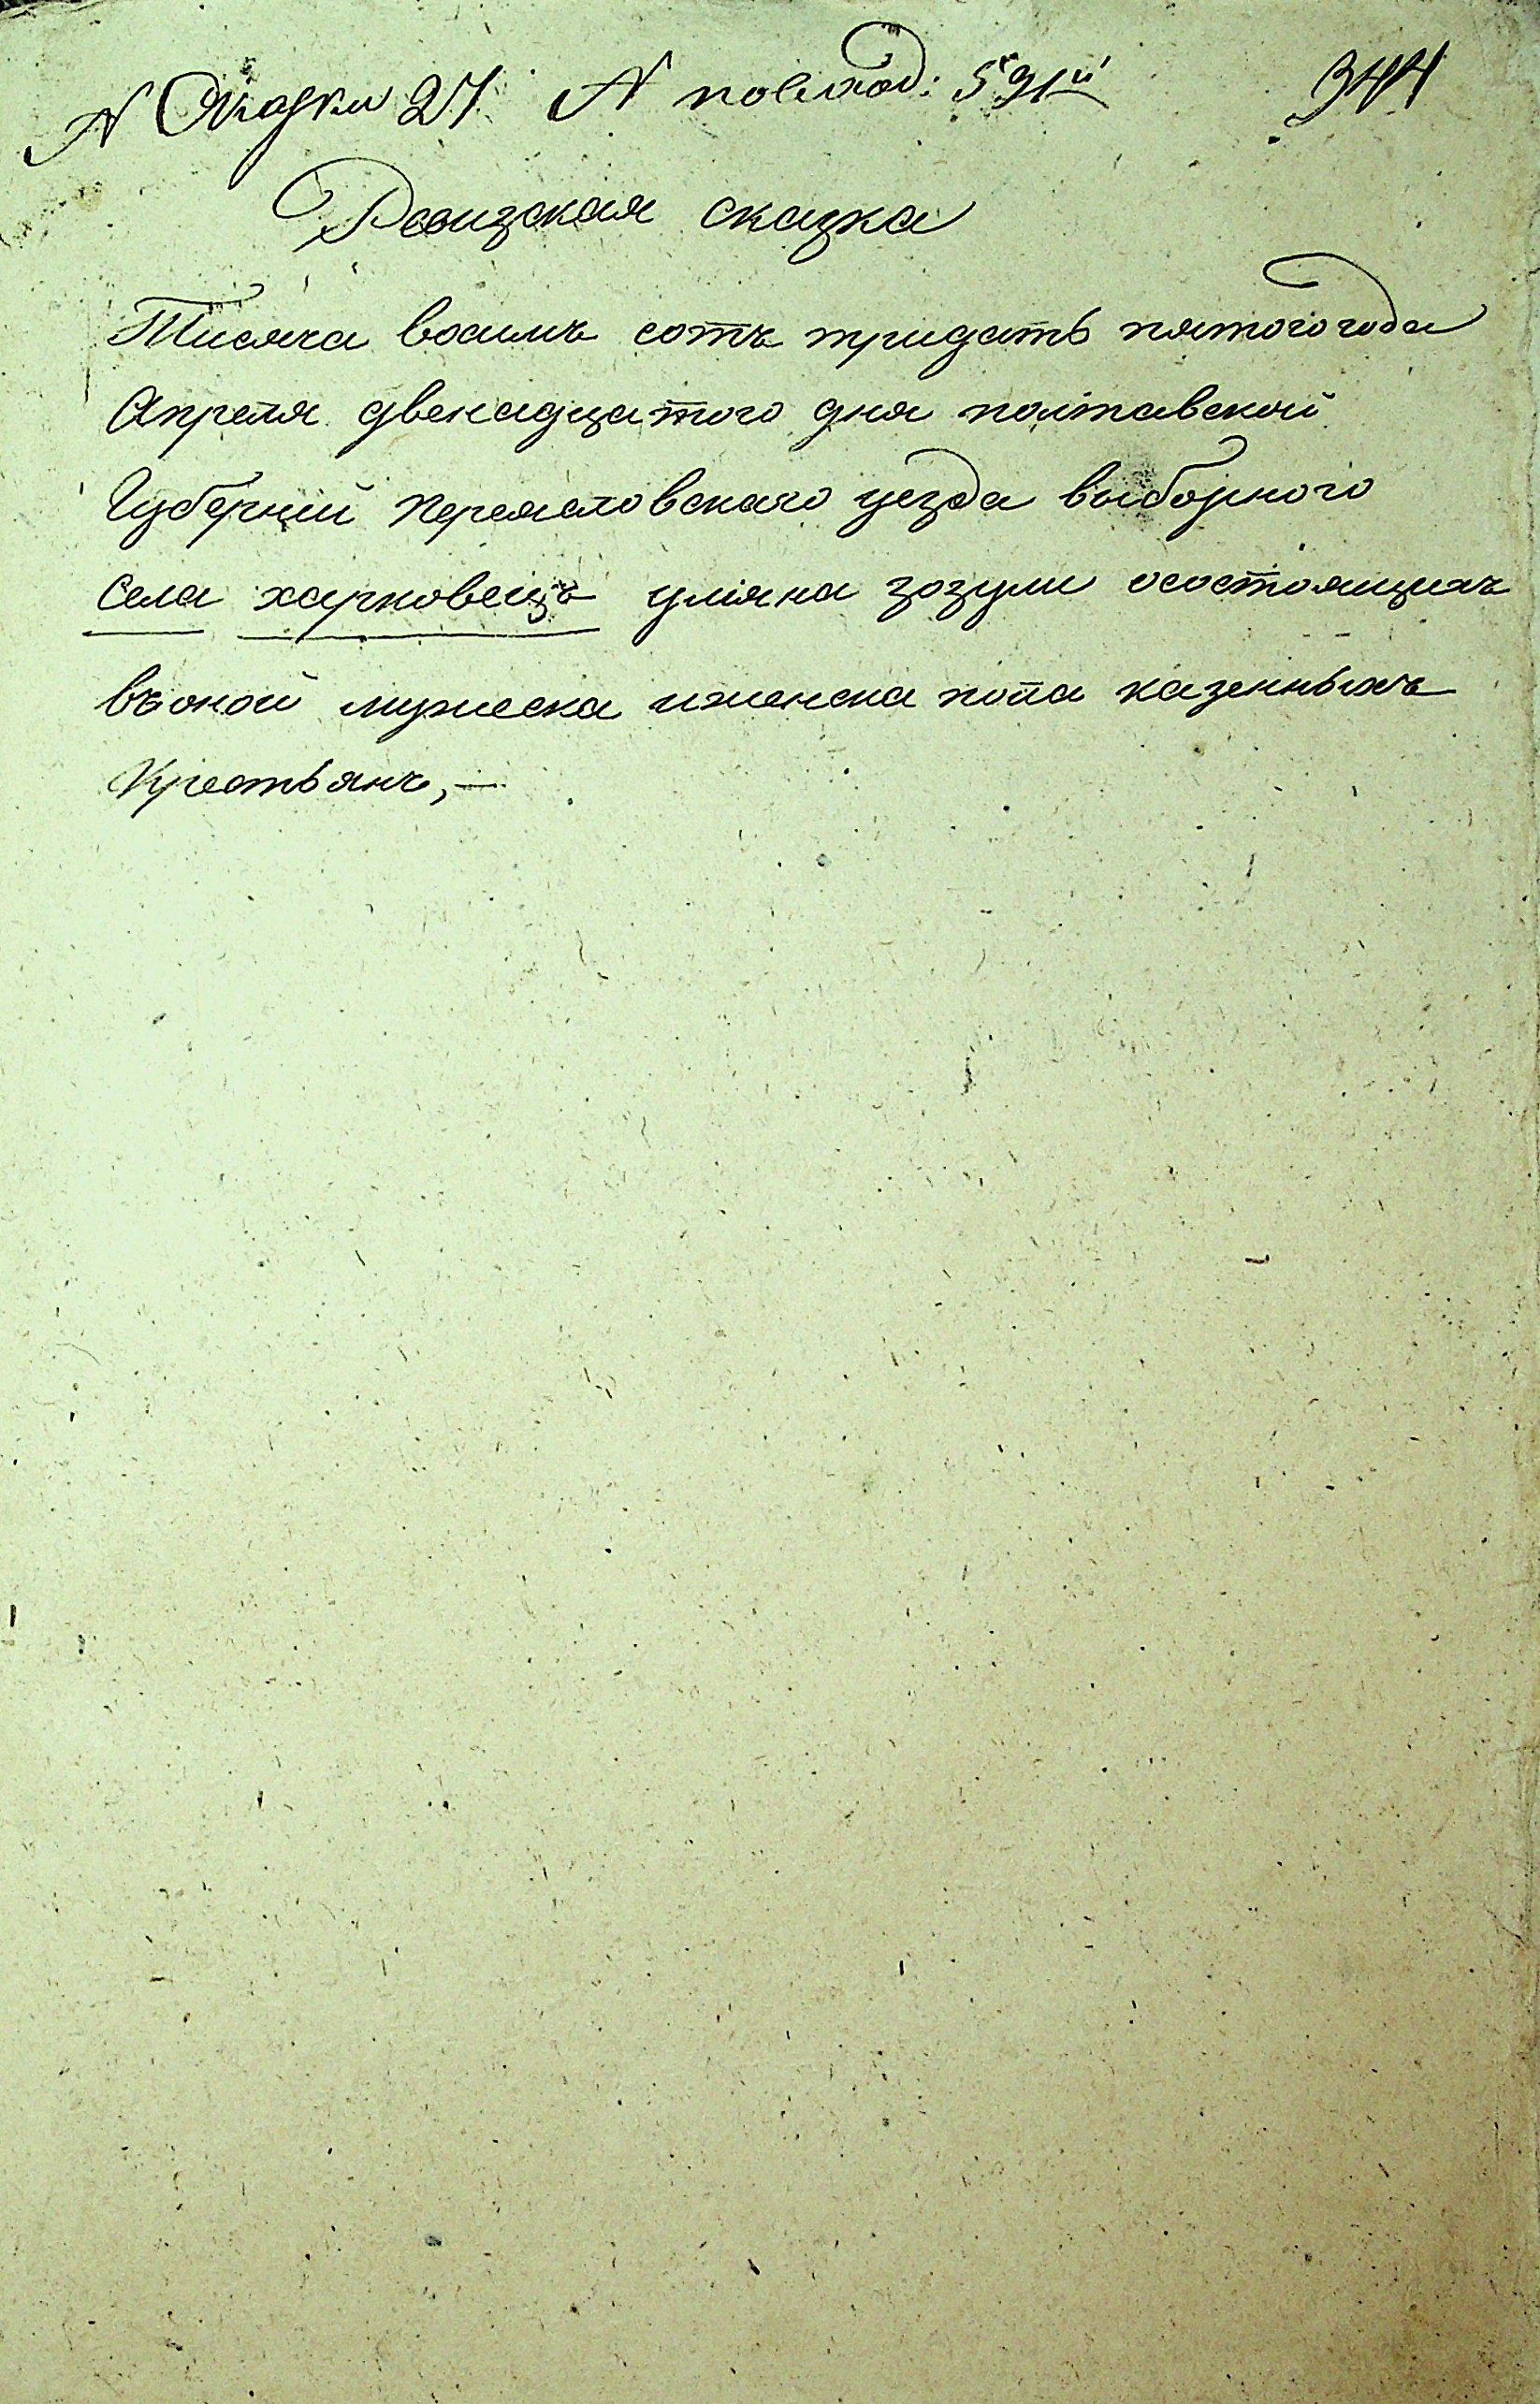 N Скаски 27 N повлад: 591й 344
Ревизская сказка
Тисяча восимъ сотъ тридать пятого года
Апреля двенадцатого дня полтавской
Губернии переясловскаго уезда выборного
Села харковецъ уляна зозули осостоящихъ
въоной мужеска иженска пола казенныхъ
Крестьянъ,—